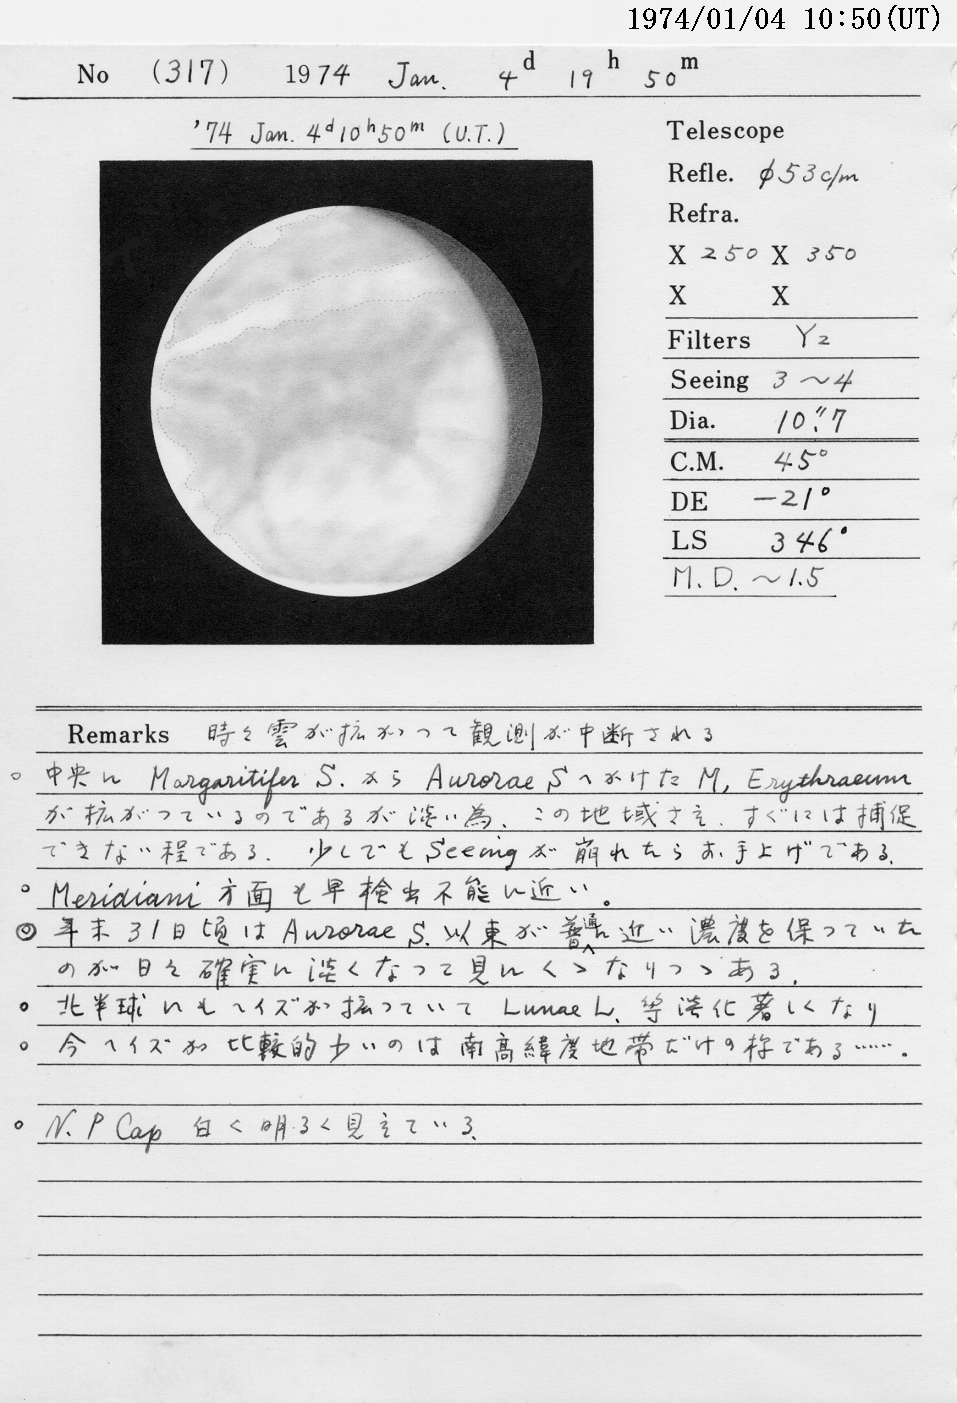 1974/01/04 10:50(UT)
No (317) 1974 Jan. 4d 19h 50m
'74 Jan. 4d10h50m (U.T.)
Telescope
Refle. φ53c/m
Refra.
X 250 X 350
X X
Filters Y2
Seeing 3～4
Dia. 10."7
C.M. 45°
DE −21°
LS 346°
M.D. ～1.5
Remarks 時々雲が拡がって観測が中断される
○ 中央に Margaritifer S. から Aurorae S へかけた M, Erythraeum
が拡がっているのであるが淡い為、この地域さえ、すぐには捕促
できない程である. 少しでも Seeing が崩れたらお手上げである.
○ Meridiani 方面も早検出不能に近い。
◎ 年末31日頃は Aurorae S. 以東が普通に近い濃度を保っていた
のが日々確実に淡くなって見にくゝなりつゝある.
○ 北半球にもヘイズが拡っていて Lunae L. 等淡化著しくなり
○ 今ヘイズが比較的少いのは南高緯度地帯だけの様である……。
○ N. P Cap 白く明るく見えている.